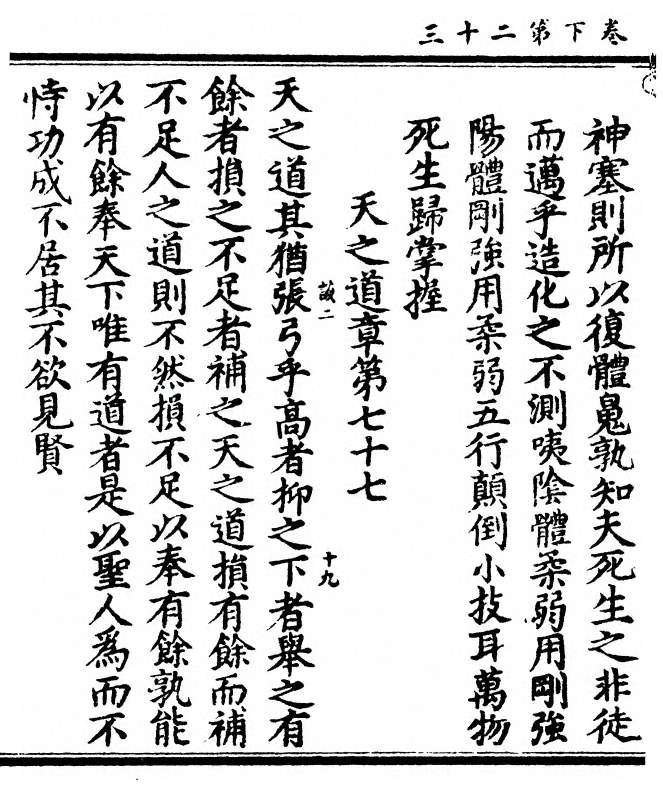 卷下第二十三
神塞則所以復體鬼孰知夫死生之非徒
而邁乎造化之不測咦陰體柔弱用剛強
陽體剛強用柔弱五行顛倒小技耳萬物
死生歸掌握
天之道章第七十七
敢二
十九
天之道其猶張弓乎高者抑之下者舉之有
餘者損之不足者補之天之道損有餘而補
不足人之道則不然損不足以奉有餘孰能
以有餘奉天下唯有道者是以聖人為而不
恃功成不居其不欲見賢